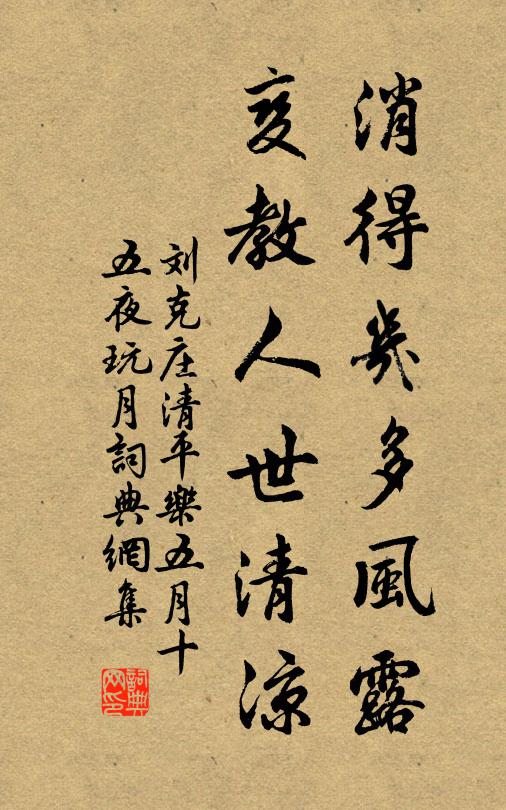 消得幾多風露
变教人世清涼
刘克庄清平樂五月十
五夜玩月詞典網集
詞典
网印